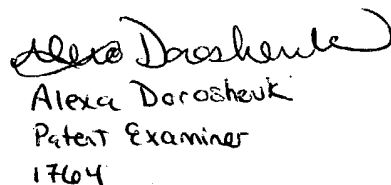 Alexa Doroshenk
Alexa Doroshenk
Patent Examiner
1764